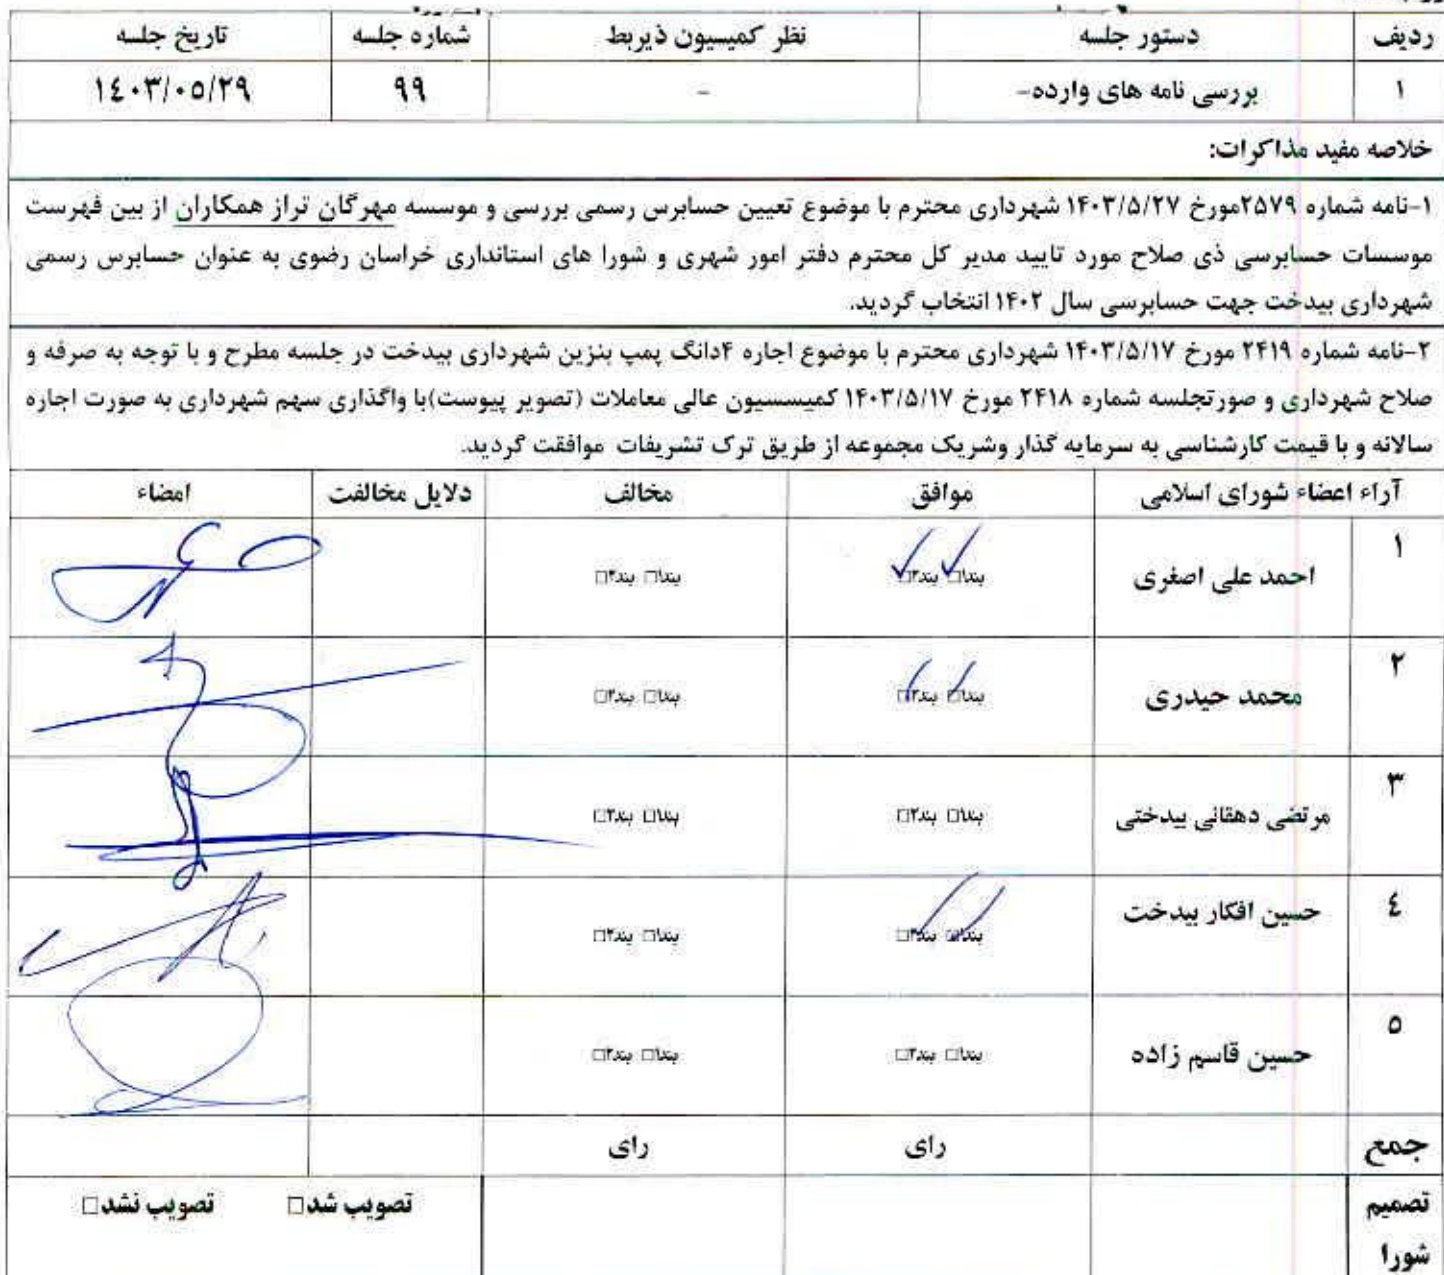 ردیف دستور جلسه نظر کمیسیون ذیربط شماره جلسه تاریخ جلسه
۱ بررسی نامه های وارده- - ۹۹ ۱٤۰۳/۰٥/۲۹
خلاصه مفید مذاکرات:
۱-نامه شماره ۲۵۷۹مورخ ۱۴۰۳/۵/۲۷ شهرداری محترم با موضوع تعیین حسابرس رسمی بررسی و موسسه مهرگان تراز همکاران از بین فهرست
موسسات حسابرسی ذی صلاح مورد تایید مدیر کل محترم دفتر امور شهری و شورا های استانداری خراسان رضوی به عنوان حسابرس رسمی
شهرداری بیدخت جهت حسابرسی سال ۱۴۰۲ انتخاب گردید.
۲-نامه شماره ۲۴۱۹ مورخ ۱۴۰۳/۵/۱۷ شهرداری محترم با موضوع اجاره ۴دانگ پمپ بنزین شهرداری بیدخت در جلسه مطرح و با توجه به صرفه و
صلاح شهرداری و صورتجلسه شماره ۲۴۱۸ مورخ ۱۴۰۳/۵/۱۷ کمیسسیون عالی معاملات (تصویر پیوست)با واگذاری سهم شهرداری به صورت اجاره
سالانه و با قیمت کارشناسی به سرمایه گذار وشریک مجموعه از طریق ترک تشریفات موافقت گردید.
آراء اعضاء شورای اسلامی موافق مخالف دلایل مخالفت امضاء
۱ احمد علی اصغری بند۱□ بند۲□ بند۱□ بند۲□
۲ محمد حیدری بند۱□ بند۲□ بند۱□ بند۲□
۳ مرتضی دهقانی بیدختی بند۱□ بند۲□ بند۱□ بند۲□
٤ حسین افکار بیدخت بند۱□ بند۲□ بند۱□ بند۲□
٥ حسین قاسم زاده بند۱□ بند۲□ بند۱□ بند۲□
جمع رای رای
تصمیم تصویب شد□ تصویب نشد□
شورا